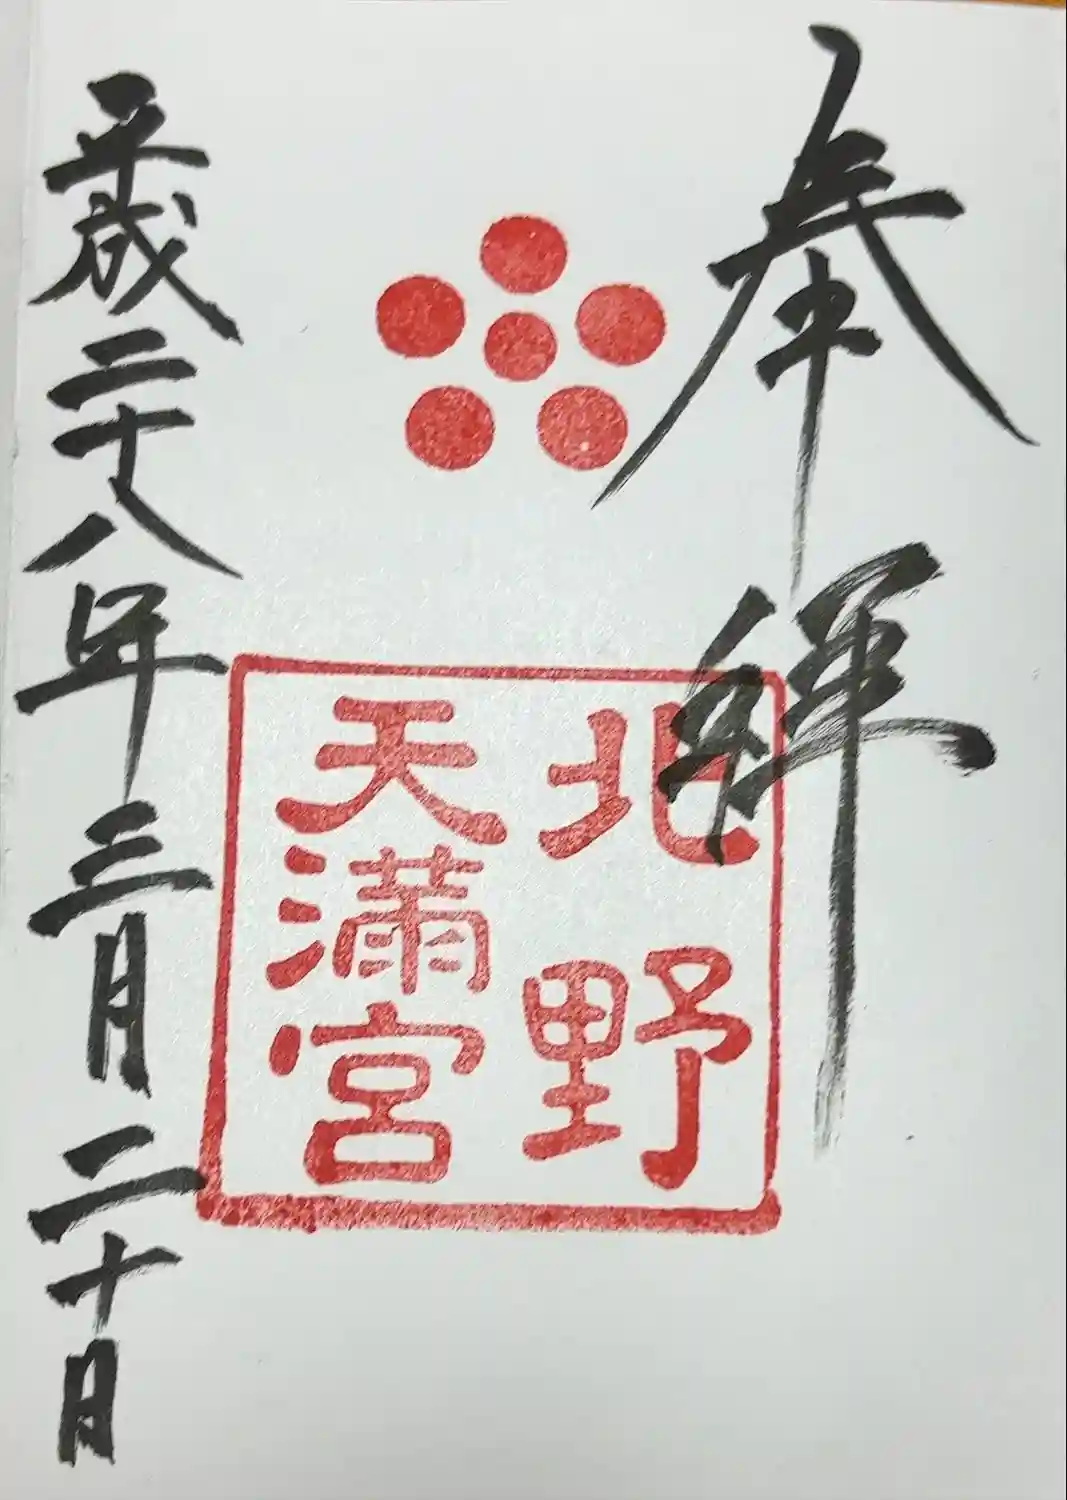 奉拝
北野
天満宮
平成二十八年三月二十日